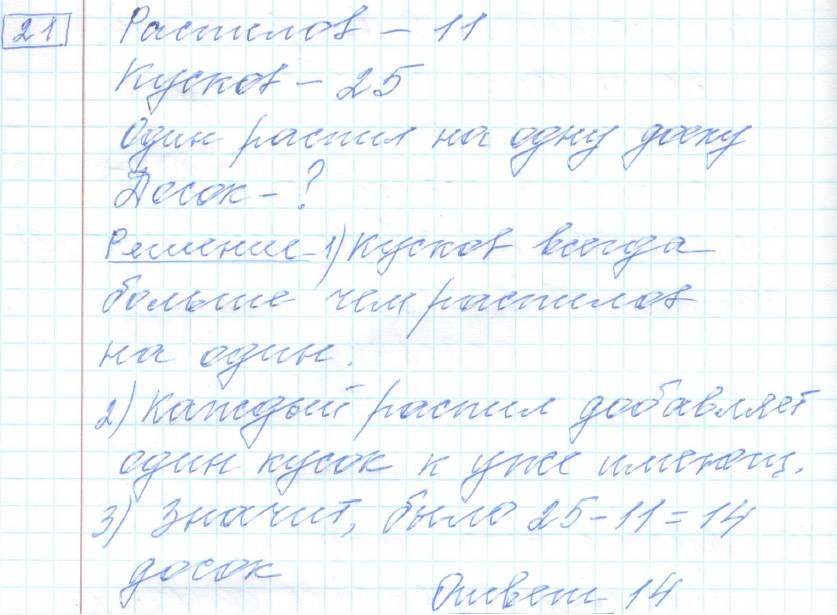 21
Распилов – 11
Кусков – 25
Один распил на одну доску
Досок – ?
Решение 1) Кусков всегда
больше чем распилов
на один.
2) Каждый распил добавляет
один кусок к уже имеющ.
3) Значит, было 25-11=14
досок
Ответ 14